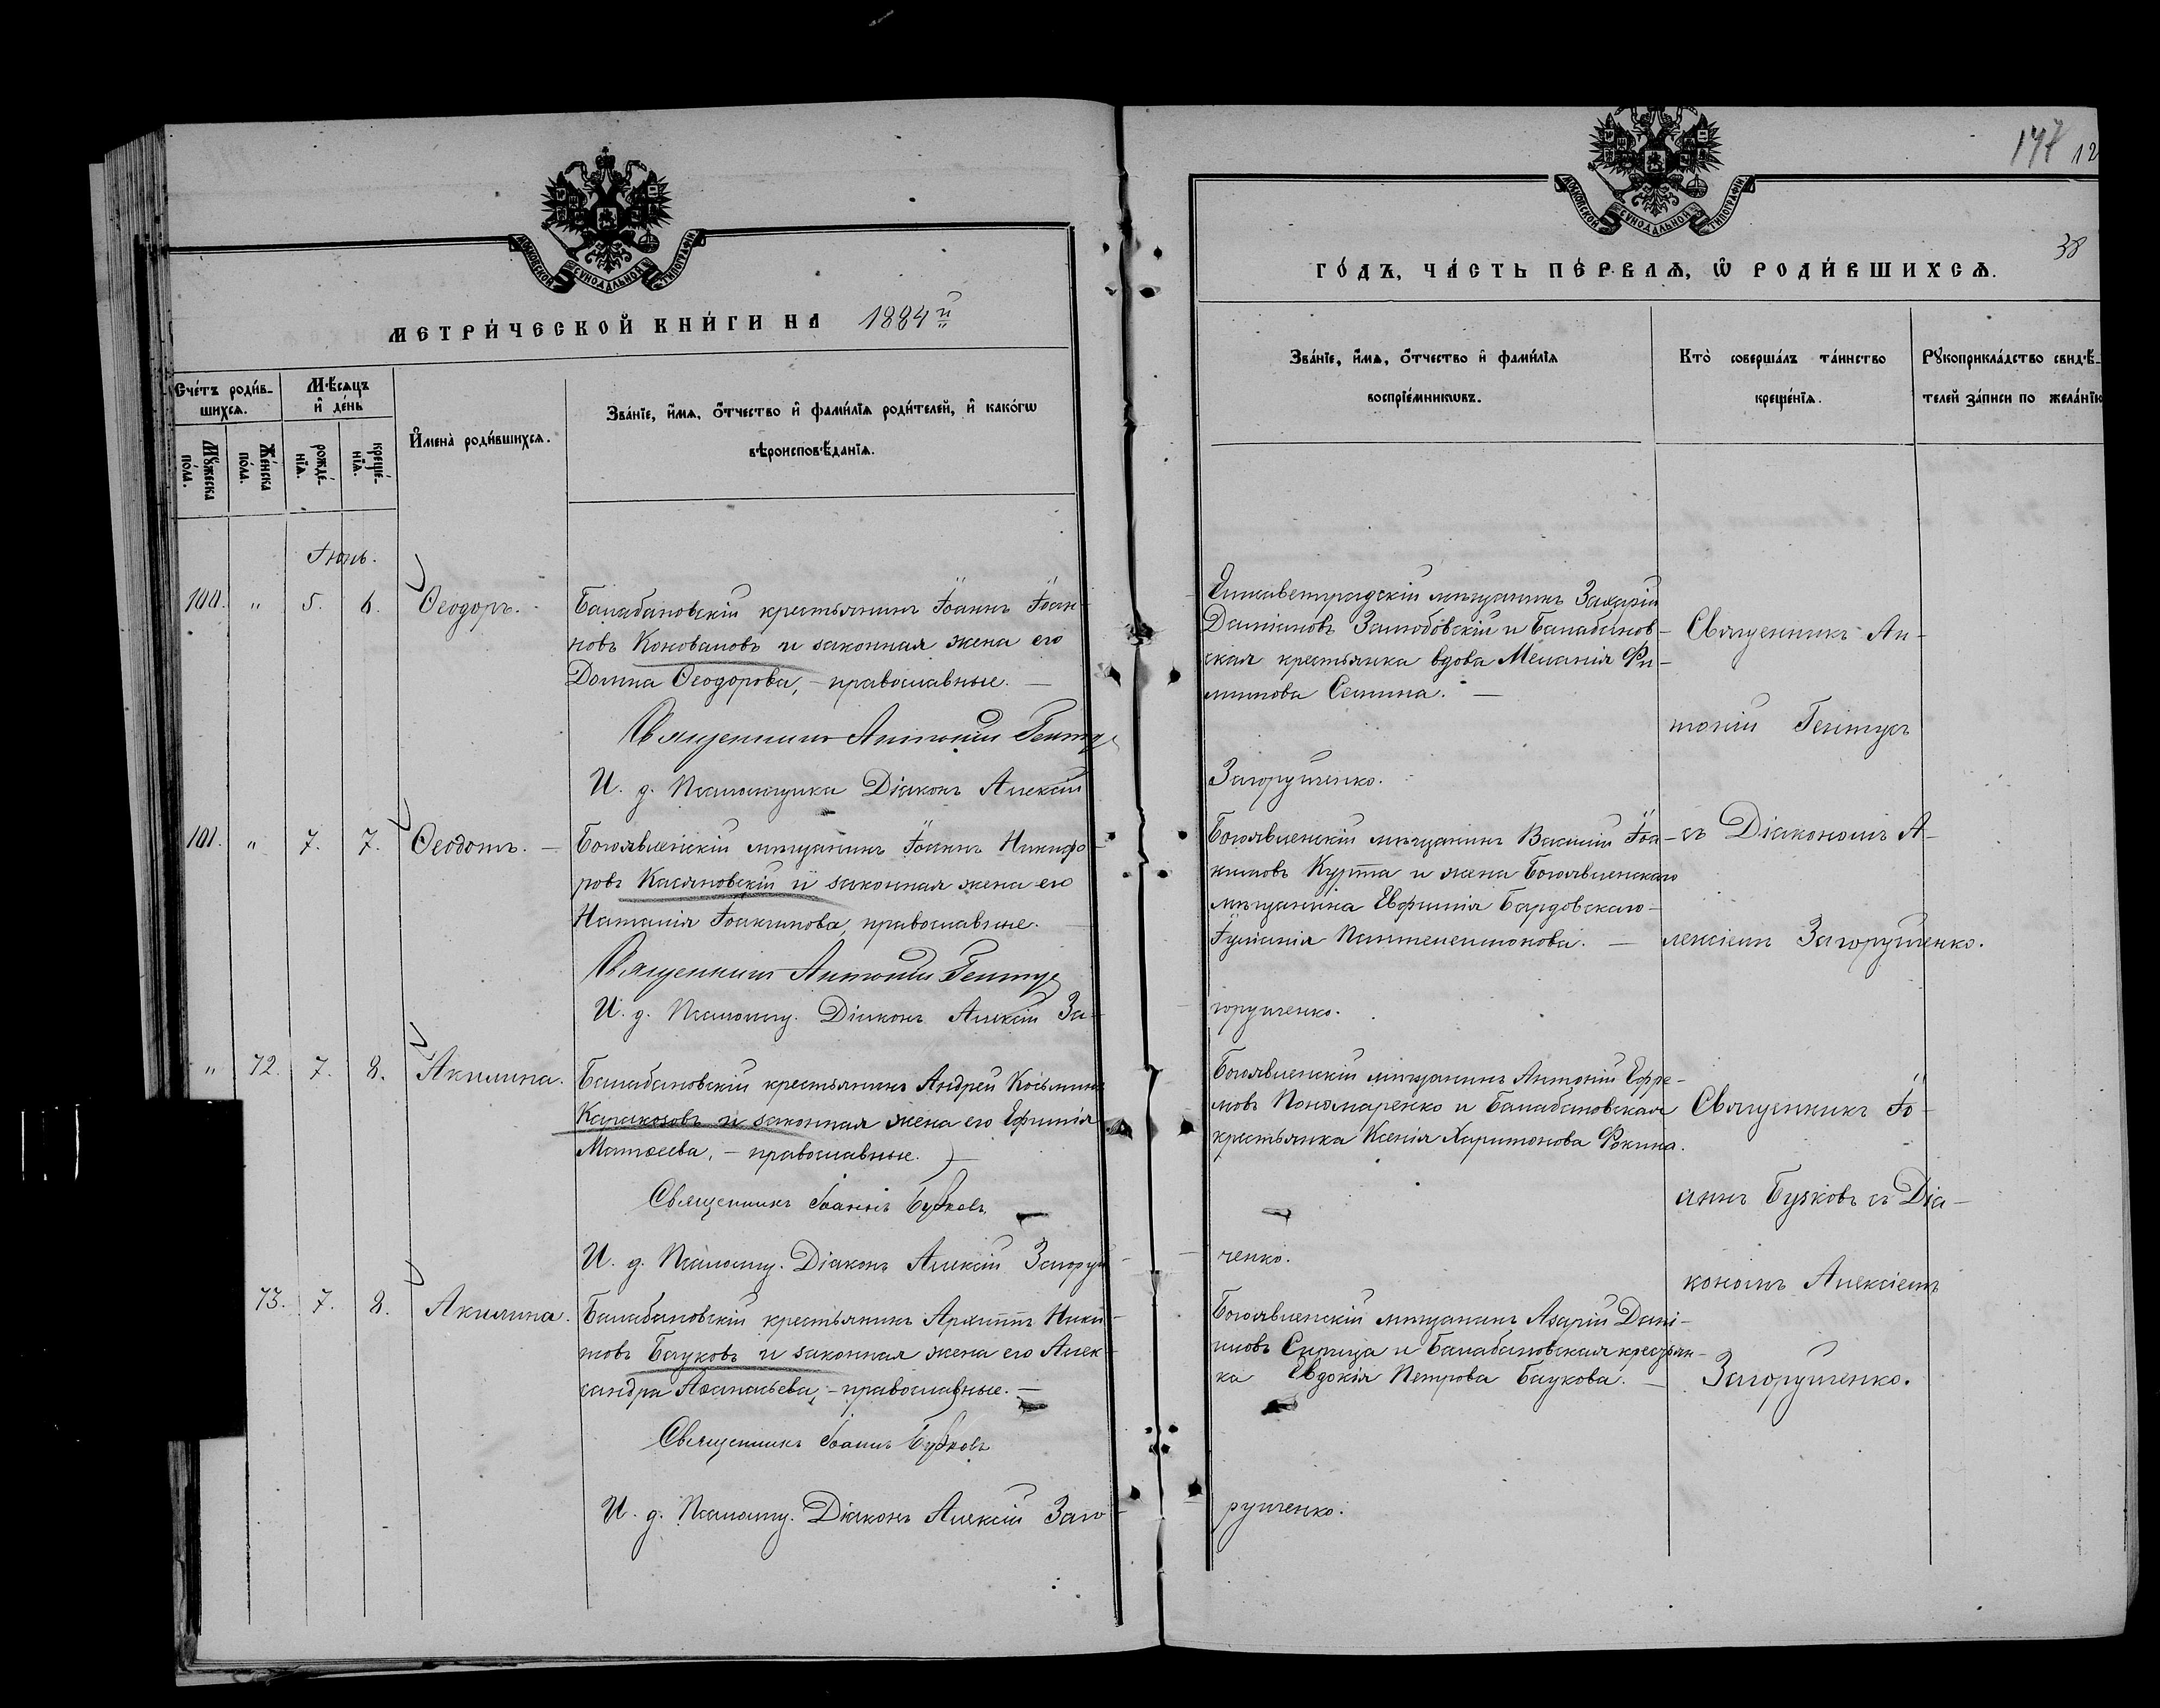 МОСКОВСКОЙ СѴНОДАЛЬНОЙ ТИПОГРАФІИ
МЕТРИ́ЧЕСКОЙ КНИ́ГИ НА 1884й
Сче́тъ роди́в-
шихся.
Мѣ́сяцъ
и҆ де́нь
И҆мена̀ роди́вшихся.
Зва́нїе, и҆́мя, ѻ҆́тчество и҆ фами́лїя роди́телей, и҆ како́гѡ
вѣроисповѣ́данїя.
Мꙋ́жеска
по́ла.
Же́нска
по́ла.
рожде́-
нїя.
креще́-
нїя.
Іюнь.
100. " 5. 6. Ѳеодоръ.
Балабановскій крестьянинъ Іоаннъ Іоан-
новъ Коноваловъ и законная жена его
Домна Ѳеодорова, - православные. —
Священникъ Антоній Гентуг
И. д. Псаломщика Діаконъ Алексій
101. " 7. 7. Ѳеодотъ. —
Богоявленскій мѣщанинъ Іоаннъ Никифо-
ровъ Касяновскій и законная жена его
Наталія Іоакимова, православные.
Священникъ Антоній Гентуг
И. д. Псаломщ. Діаконъ Алексій За-
" 72. 7. 8. Акилина.
Балабановскій крестьянинъ Андрей Косьминъ
Каракозовъ и законная жена его Ефимія
Матѳеева, - православные. —
Священникъ Іоаннъ Бузковъ
И. д. Псаломщ. Діаконъ Алексій Загоруй-
73. 7. 8. Акилина.
Балабановскій крестьянинъ Архиппъ Ники-
товъ Бауковъ и законная жена его Алек-
сандра Аѳанасьева, - православные. —
Священникъ Іоаннъ Бузковъ
И. д. Псаломщ. Діаконъ Алексій Заго-
147 12
38
МОСКОВСКОЙ СѴНОДАЛЬНОЙ ТИПОГРАФІИ
ГО́ДЪ, ЧА́СТЬ ПЕ́РВАЯ, Ѽ РОДИ́ВШИХСЯ.
Зва́нїе, и҆́мя, ѻ҆́тчество и҆ фами́лїя
воспрїе́мникѡвъ.
Кто̀ соверша́лъ та́инство
креще́нїя.
Рꙋкоприкла́дство свидѣ́-
телей за́писи по жела́нїю
Елисаветградскій мѣщанинъ Захарій
Даміановъ Залюбовскій и Балабанов-
ская крестьянка вдова Меланія Фи-
липова Семина. —
Загорулченко.
Священникъ Ан-
тоній Гентугъ
съ Діакономъ А-
лексіемъ Загорулченко.
Богоявленскій мѣщанинъ Василій Іоа-
кимовъ Курта и жена Богоявленскаго
мѣщанина Евфимія Бардовскаго -
Іуліанія Пантелеимонова. —
горулченко.
Богоявленскій мѣщанинъ Антоній Ефре-
мовъ Пономаренко и Балабановская
крестьянка Ксенія Харитонова Фокина.
ченко.
Священникъ Іо-
аннъ Бузковъ съ Діа-
кономъ Алексіемъ
Загорулченко.
Богоявленскій мѣщанинъ Азарій Дані-
иловъ Синица и Балабановская крестьян-
ка Евдокія Петрова Баукова. —
рулченко.